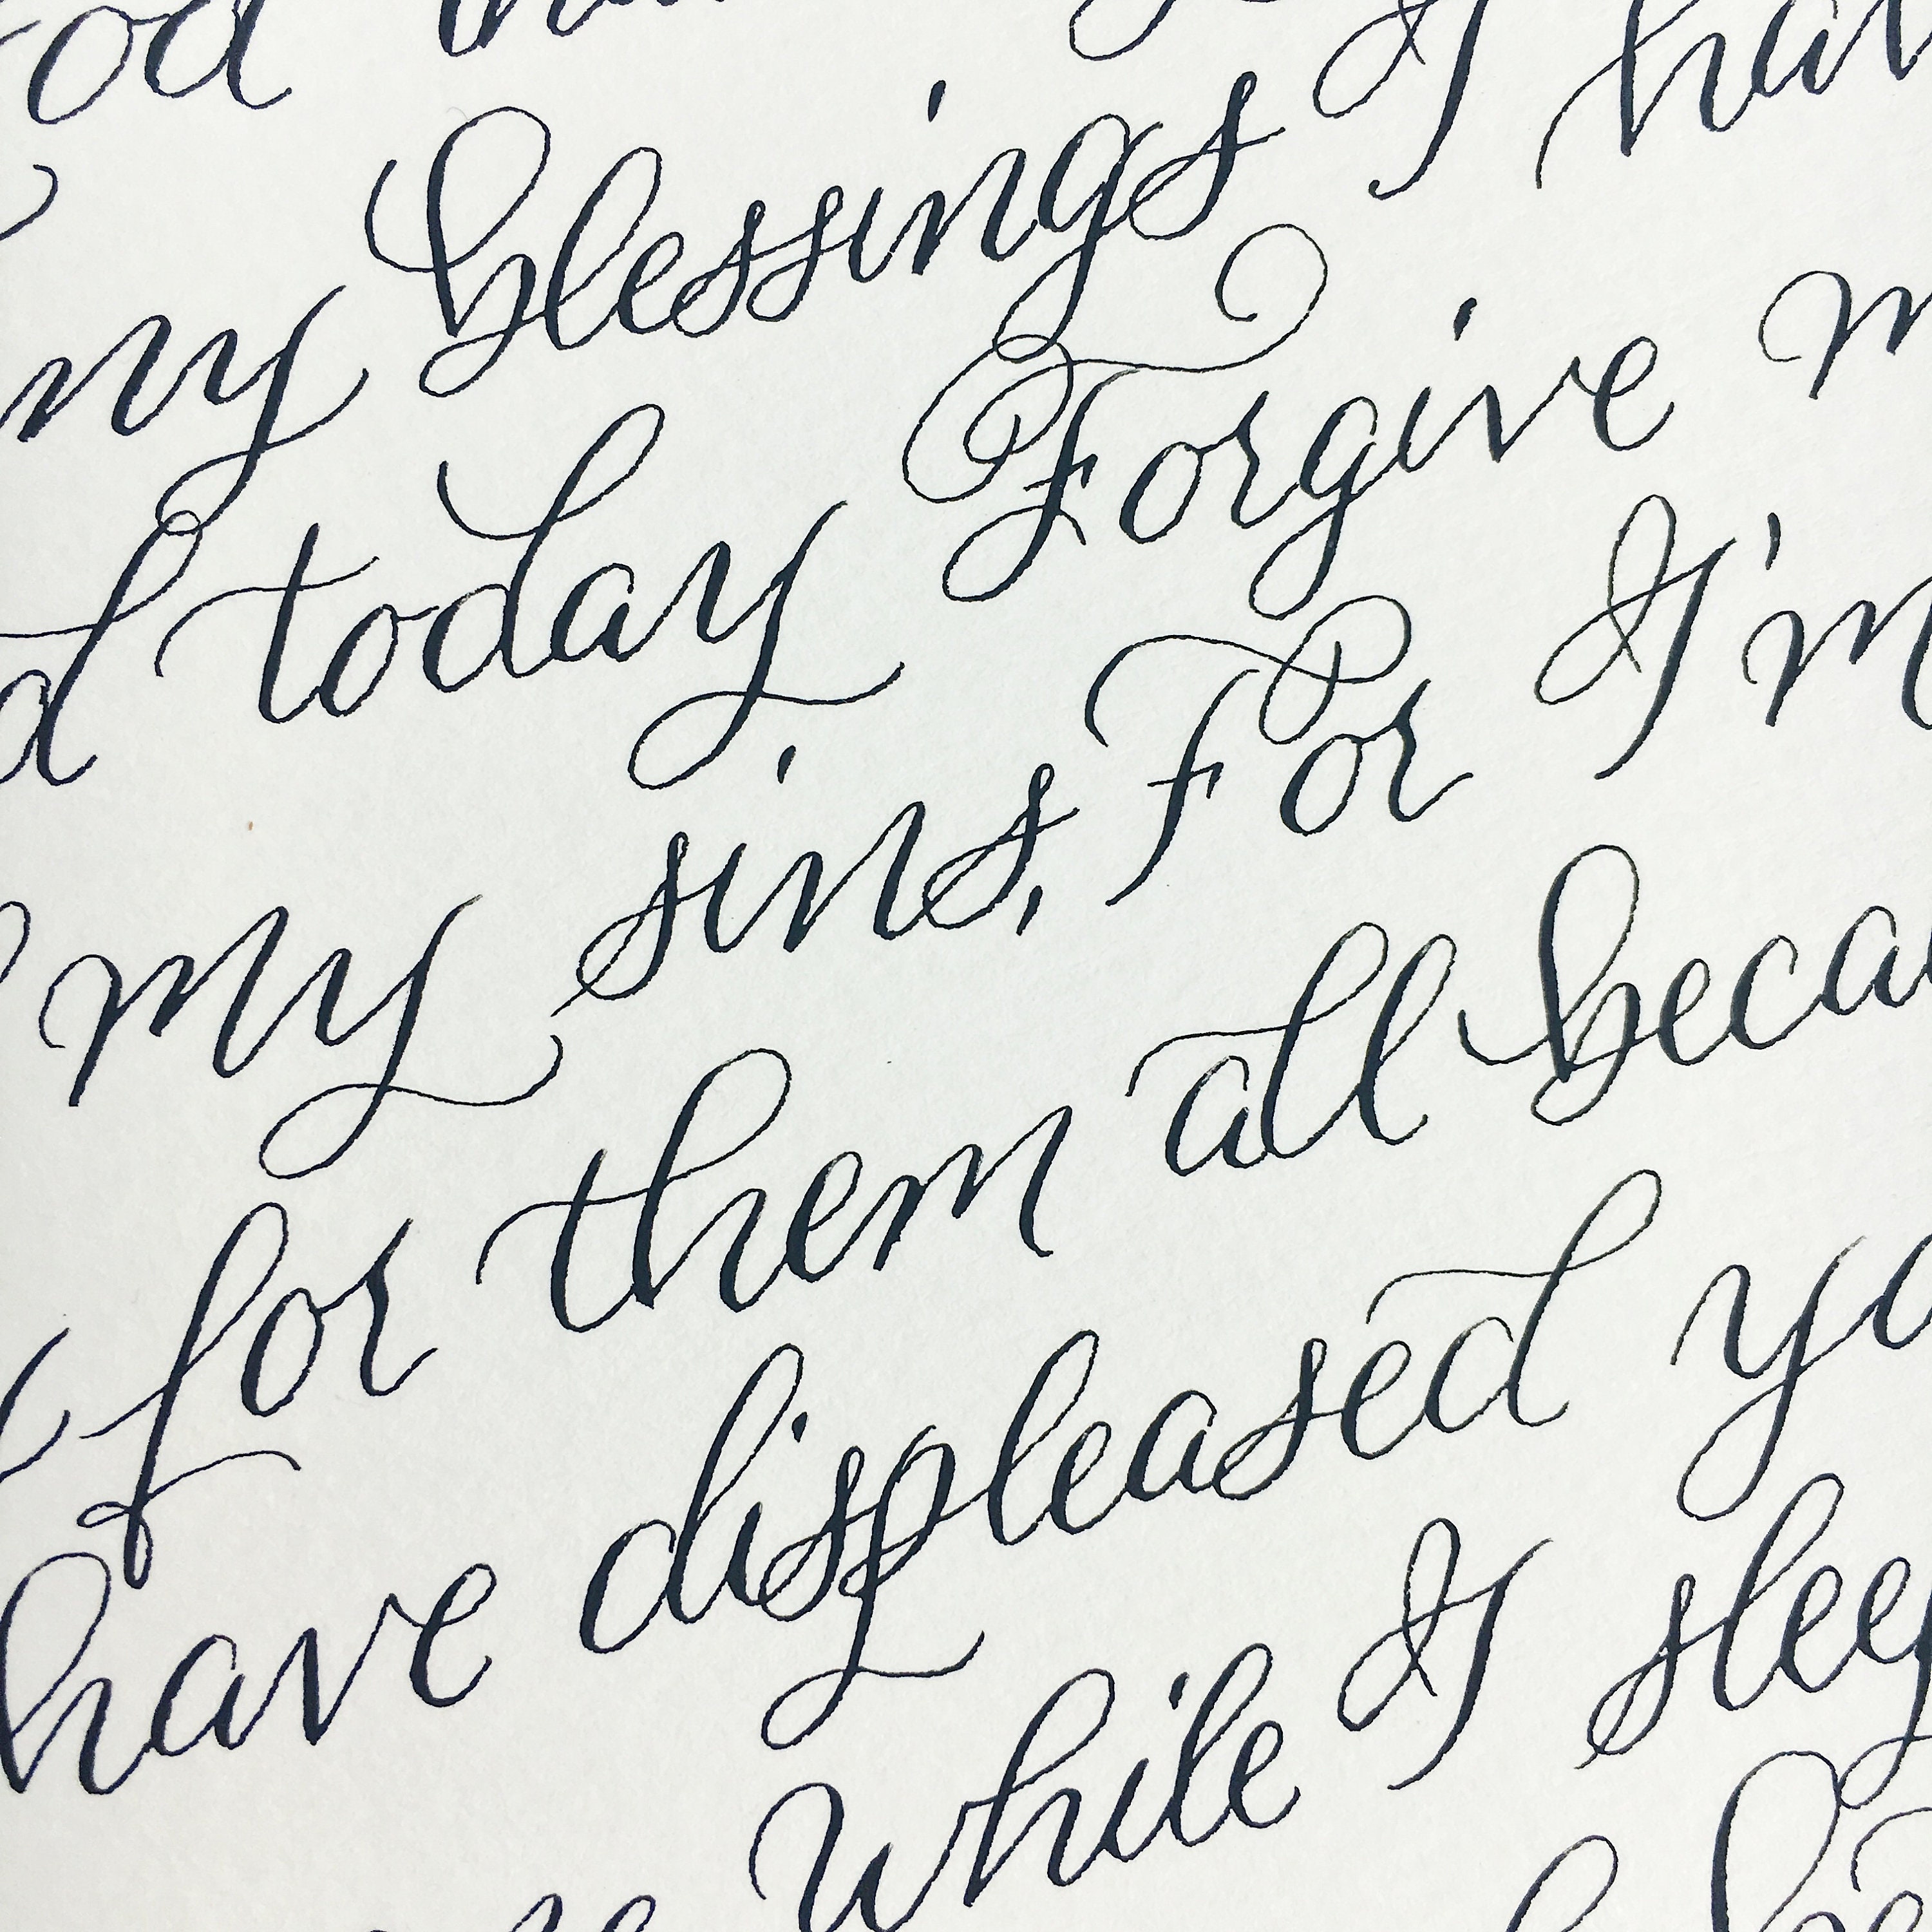 od
ny blessings I hav
d today Forgive m
my sins, For I'm
for them all beca
have displeased yo
while I slee